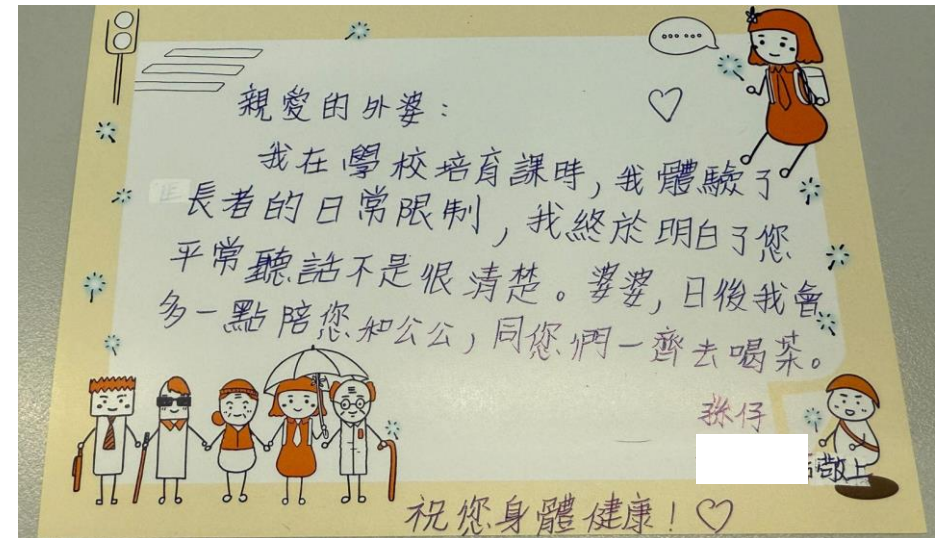 親愛的外婆：
我在學校培育課時，我體驗了
長者的日常限制，我終於明白了您
平常聽話不是很清楚。婆婆，日後我會
多一點陪您和公公，同您們一齊去喝茶。
孫仔
敬上
祝您身體健康！♡